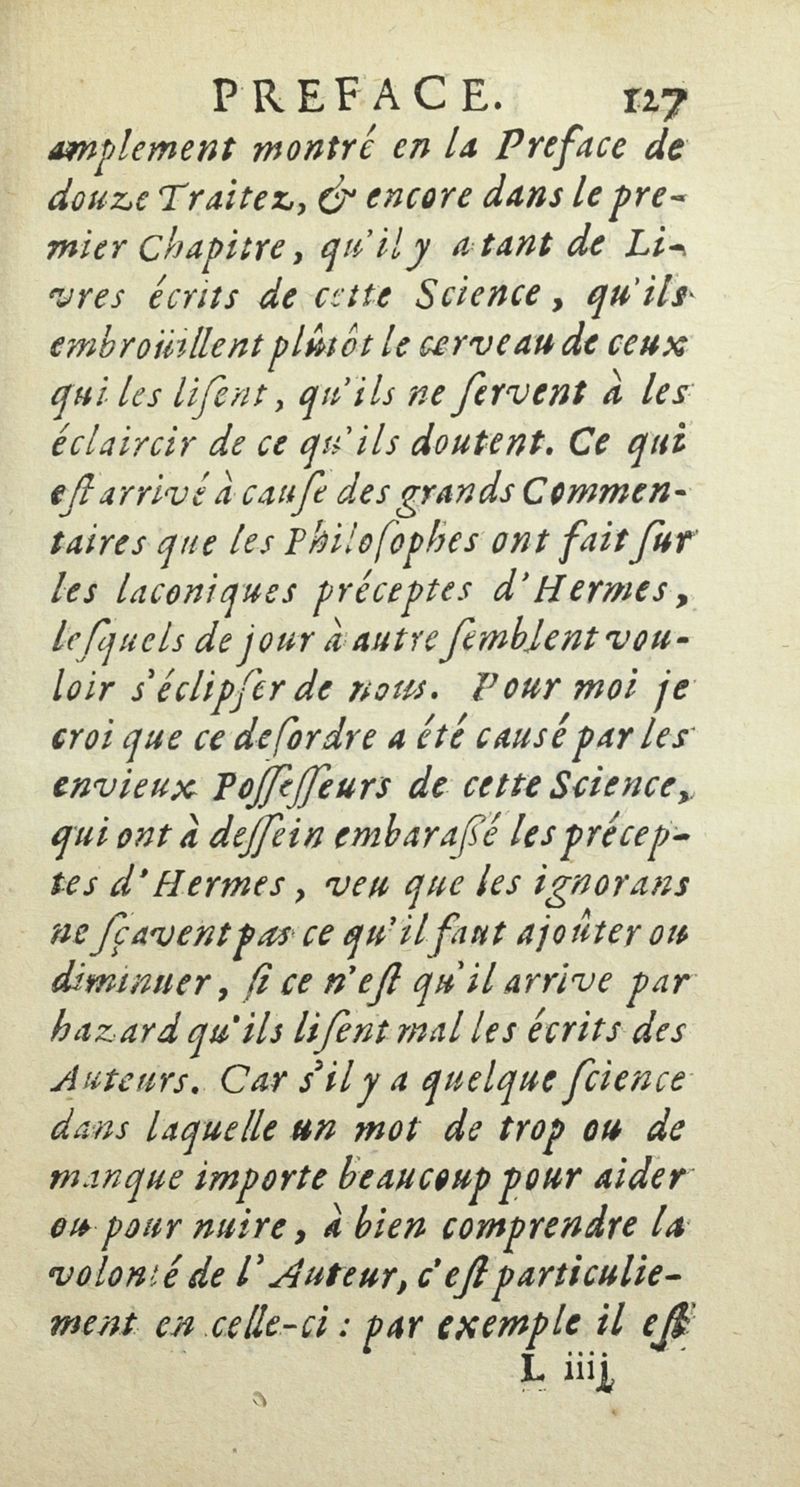 PREFACE. 127
amplement montré en la Preface de
douze Traitez, & encore dans le pre-
mier Chapitre, qu'il y a tant de Li-
vres écrits de cette Science, qu'ils
embroüillent plûtôt le cerveau de ceux
qui les liſent, qu'ils ne ſervent à les
éclaircir de ce qu'ils doutent. Ce qui
eſt arrivé à cauſe des grands Commen-
taires que les Philoſophes ont fait ſur
les laconiques préceptes d'Hermes,
leſquels de jour à autre ſemblent vou-
loir s'éclipſer de nous. Pour moi je
croi que ce deſordre a été causé par les
envieux Poſſeſſeurs de cette Science,
qui ont à deſſein embaraßé les précep-
tes d'Hermes, veu que les ignorans
ne ſçavent pas ce qu'il faut ajoûter ou
diminuer, ſi ce n'eſt qu'il arrive par
hazard qu'ils liſent mal les écrits des
Auteurs. Car s'il y a quelque ſcience
dans laquelle un mot de trop ou de
manque importe beaucoup pour aider
ou pour nuire, à bien comprendre la
volonté de l'Auteur, c'eſt particulie-
ment en celle-ci : par exemple il eſt
L iiij